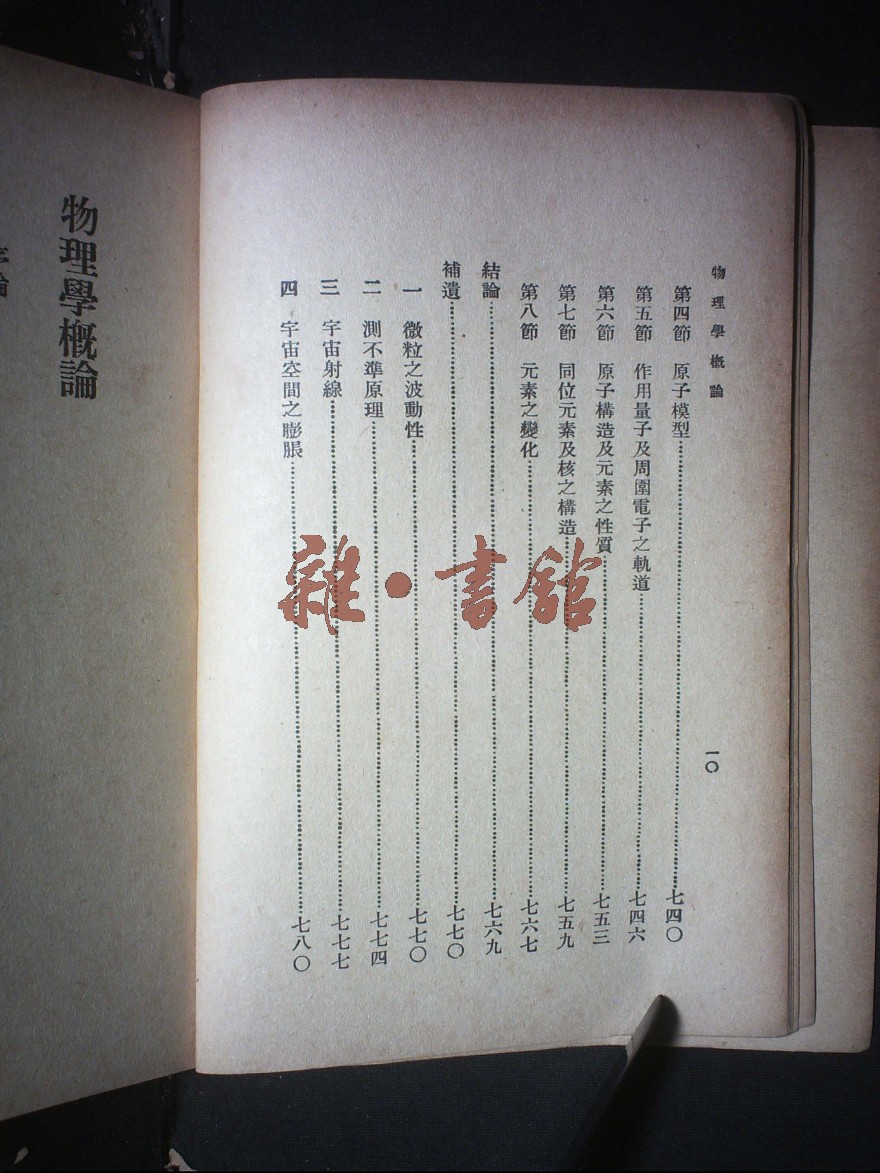 物理學概論
一〇
第四節 原子模型……七四〇
第五節 作用量子及周圍電子之軌道……七四六
第六節 原子構造及元素之性質……七五三
第七節 同位元素及核之構造……七五九
第八節 元素之變化……七六七
結論……七六九
補遺……七七〇
一 微粒之波動性……七七〇
二 測不準原理……七七四
三 宇宙射線……七七七
四 宇宙空間之膨脹……七八〇
雜·書館
物理學概論